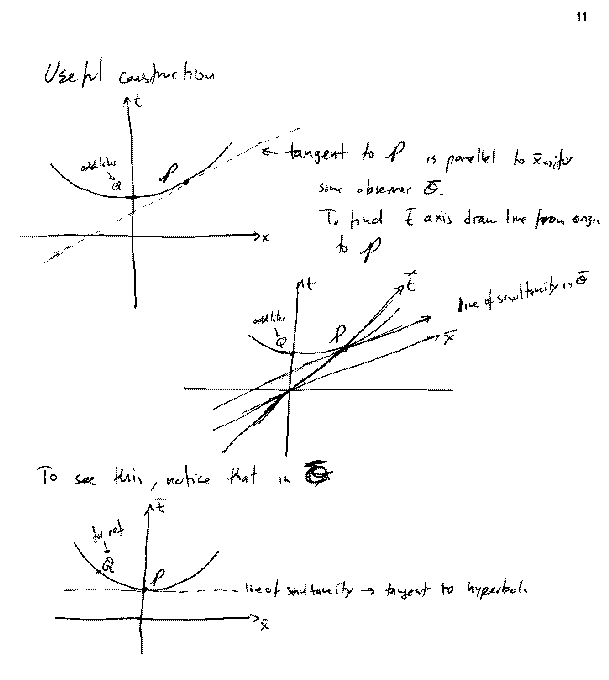 11
Useful construction
t
Q
P
← tangent to P is parallel to x̄ axis for
some observer Ō.
To find t̄ axis draw line from origin
to P
x
t
t̄
line of simultaneity in Ō
Q
P
x̄
To see this, notice that in Ō
t̄
for ref
Q
P
line of simultaneity → tangent to hyperbola
x̄